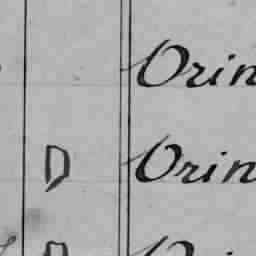 Orin
D Orin